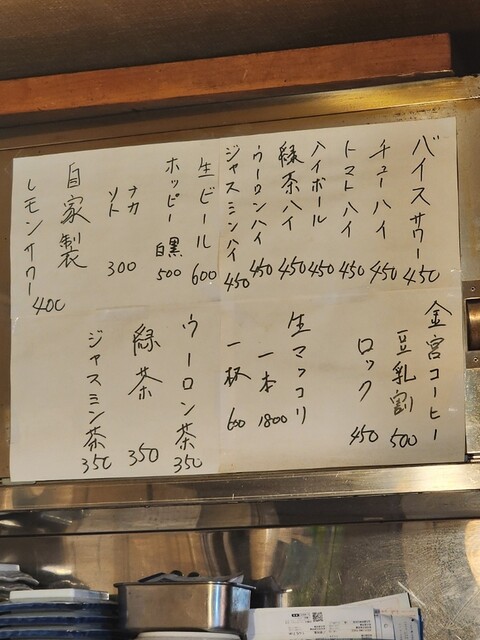 バイスサワー 450
チューハイ 450
トマトハイ 450
ハイボール 450
緑茶ハイ 450
ウーロンハイ 450
ジャスミンハイ 450
生ビール 600
ホッピー 白黒 500
ナカ
ソト 300
自家製
レモンサワー 400
金宮コーヒー
豆乳割 500
ロック 450
生マッコリ
一本 1800
一杯 600
ウーロン茶 350
緑茶 350
ジャスミン茶 350